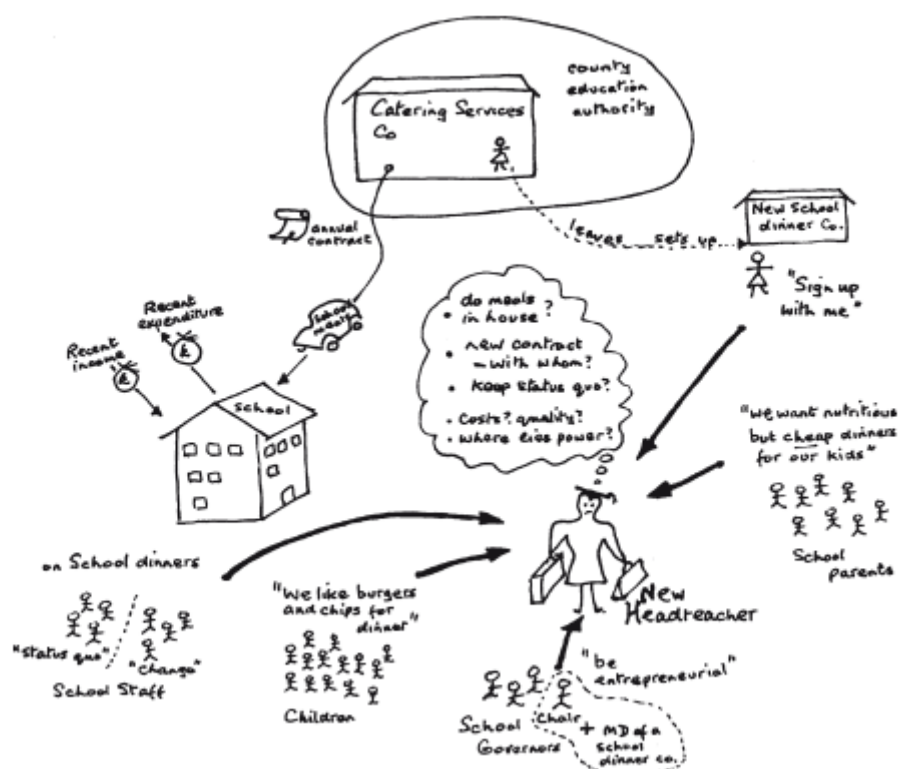 county
education
authority
Catering Services
Co
annual
contract
leaves sets up
New School
dinner Co.
"Sign up
with me"
Recent
expenditure
£
Recent
income
£
School
meals
School
do meals
in house?
new contract
– with whom?
Keep status quo?
costs? quality?
where lies power?
"We want nutritious
but cheap dinners
for our kids"
School
parents
on School dinners
"Status quo"
"change"
School Staff
"We like burgers
and chips for
dinner"
Children
New
Headteacher
"be
entrepreneurial"
School
Governors
Chair
+ MD of a
school
dinner co.